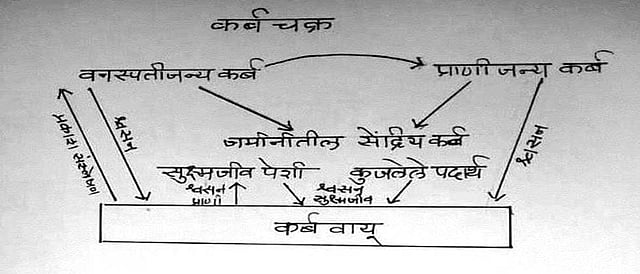 कर्ब चक्र
वनस्पतीजन्य कर्ब
प्राणी जन्य कर्ब
प्रकाश संश्लेषण
श्वसन
जमीनीतील सेंद्रिय कर्ब
श्वसन
सुक्ष्मजीव पेशी
कुजलेले पदार्थ
श्वसन
प्राणी
श्वसन
सुक्ष्मजीव
कर्ब वायू